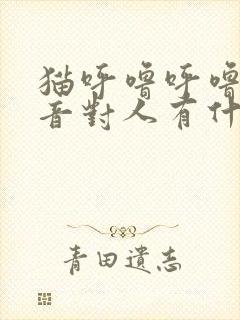 猫呼噜呼噜
音對人有什
青田遺志